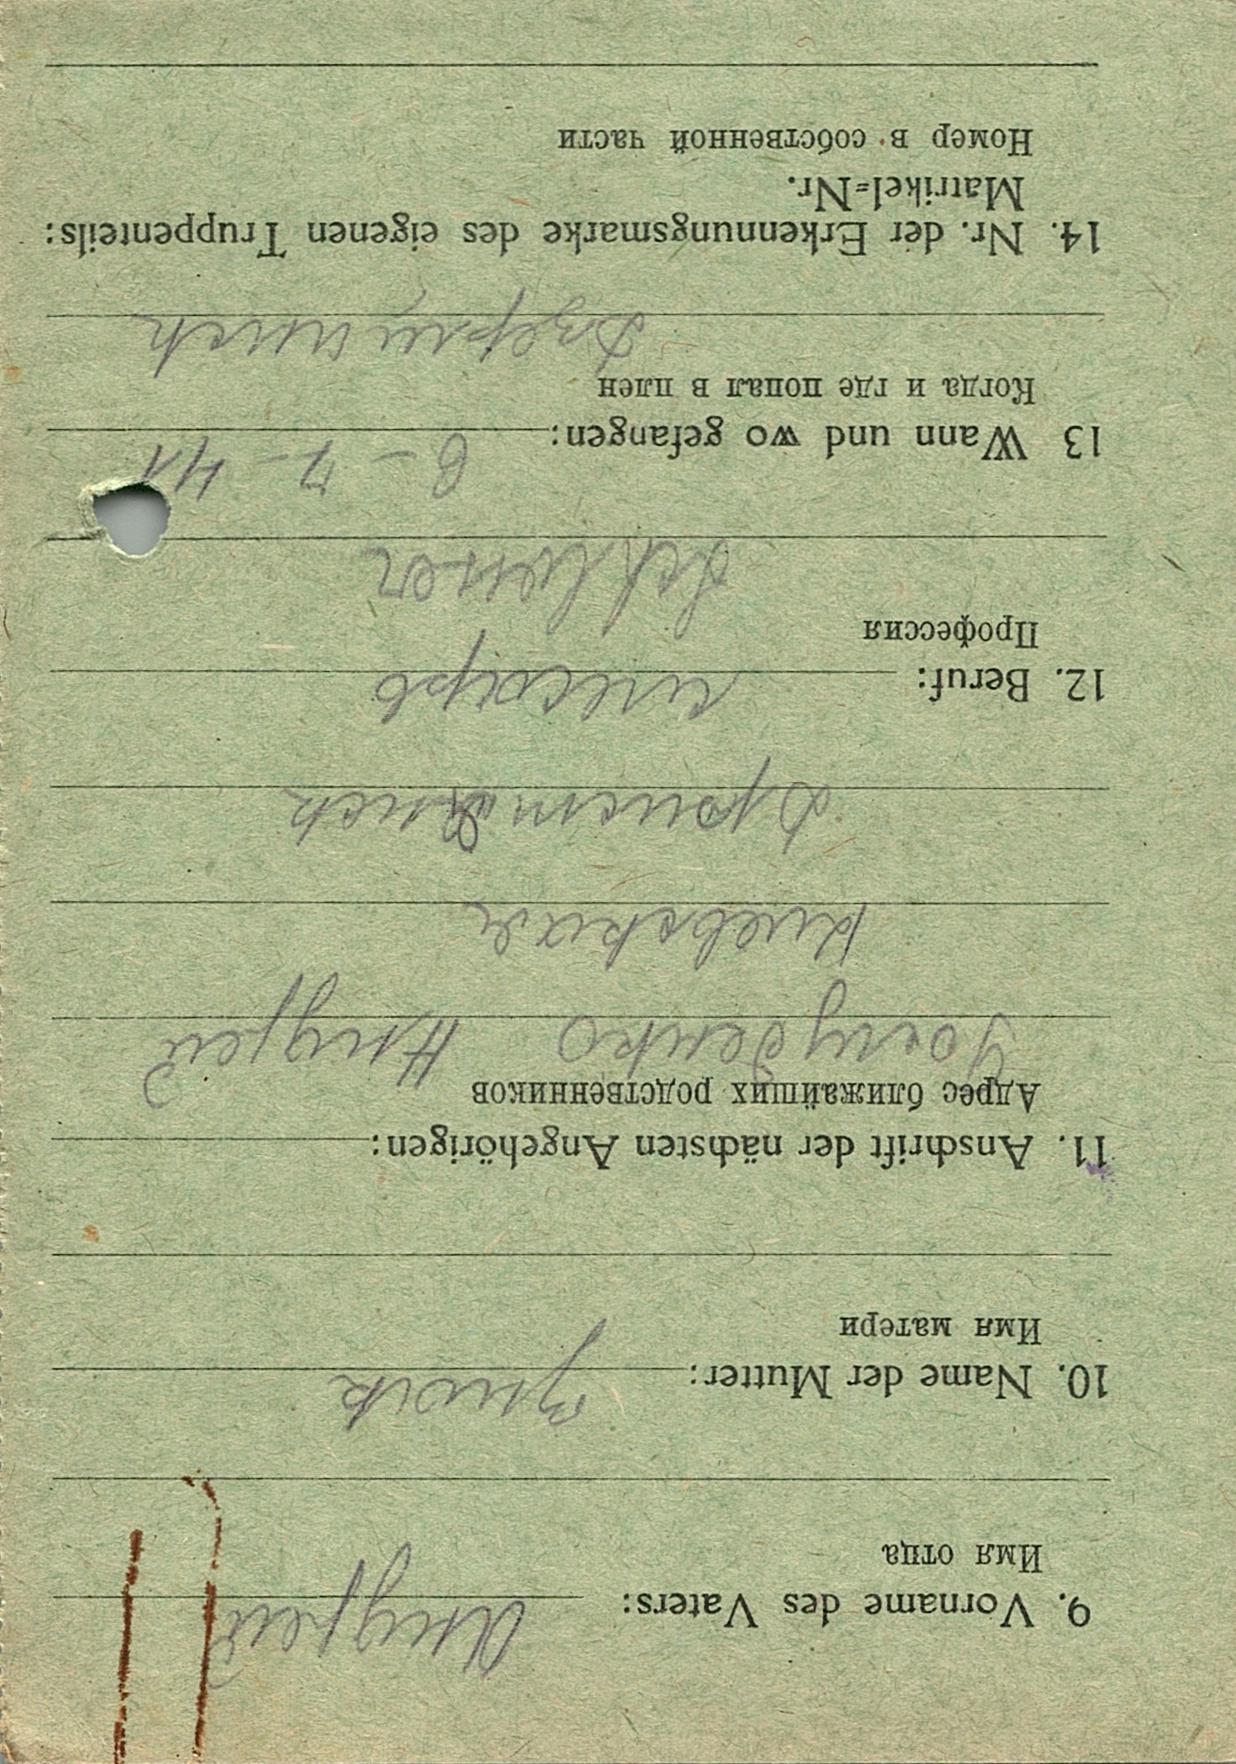 9. Vorname des Vaters: Андрей
Имя отца
10. Name der Mutter:
Имя матери
11. Anschrift der nächsten Angehörigen:
Адрес ближайших родственников
Андрей
Киевская
12. Beruf: слесарь
Профессия
Schlosser
13 Wann und wo gefangen:
Когда и где попал в плен
14. Nr. der Erkennungsmarke des eigenen Truppenteils:
Matrikel=Nr.
Номер в собственной части